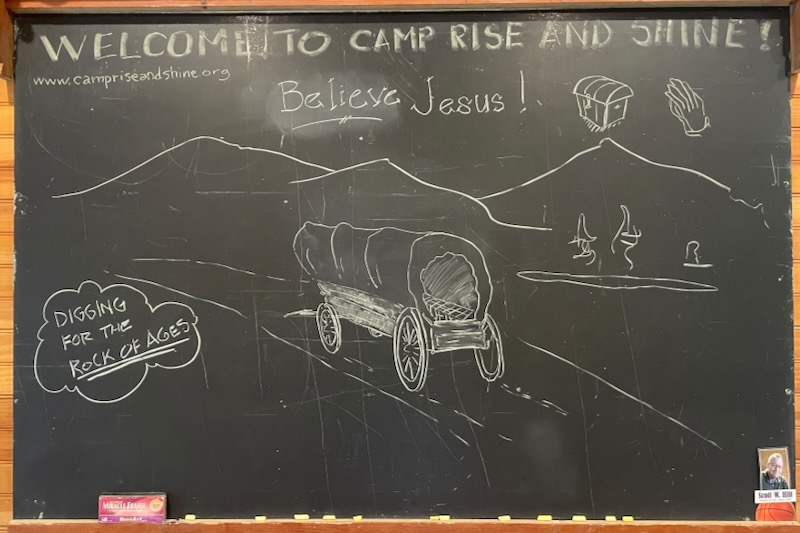 WELCOME TO CAMP RISE AND SHINE!
www.campriseandshine.org
Believe Jesus!
DIGGING
FOR THE
ROCK OF AGES
MIRACLE ERASER
Scott W. Hill